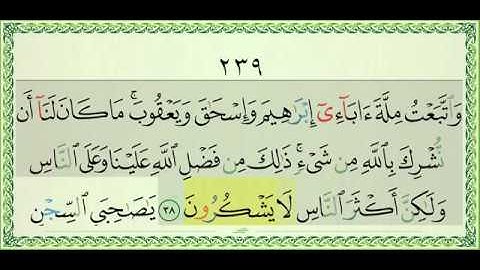 ٢٣٩
وَٱتَّبَعْتُ مِلَّةَ ءَابَآءِىٓ إِبْرَٰهِيمَ وَإِسْحَٰقَ وَيَعْقُوبَ ۚ مَا كَانَ لَنَآ أَن
نُّشْرِكَ بِٱللَّهِ مِن شَىْءٍ ۚ ذَٰلِكَ مِن فَضْلِ ٱللَّهِ عَلَيْنَا وَعَلَى ٱلنَّاسِ
وَلَٰكِنَّ أَكْثَرَ ٱلنَّاسِ لَا يَشْكُرُونَ ٣٨ يَٰصَىٰحِبَىِ ٱلسِّجْنِ